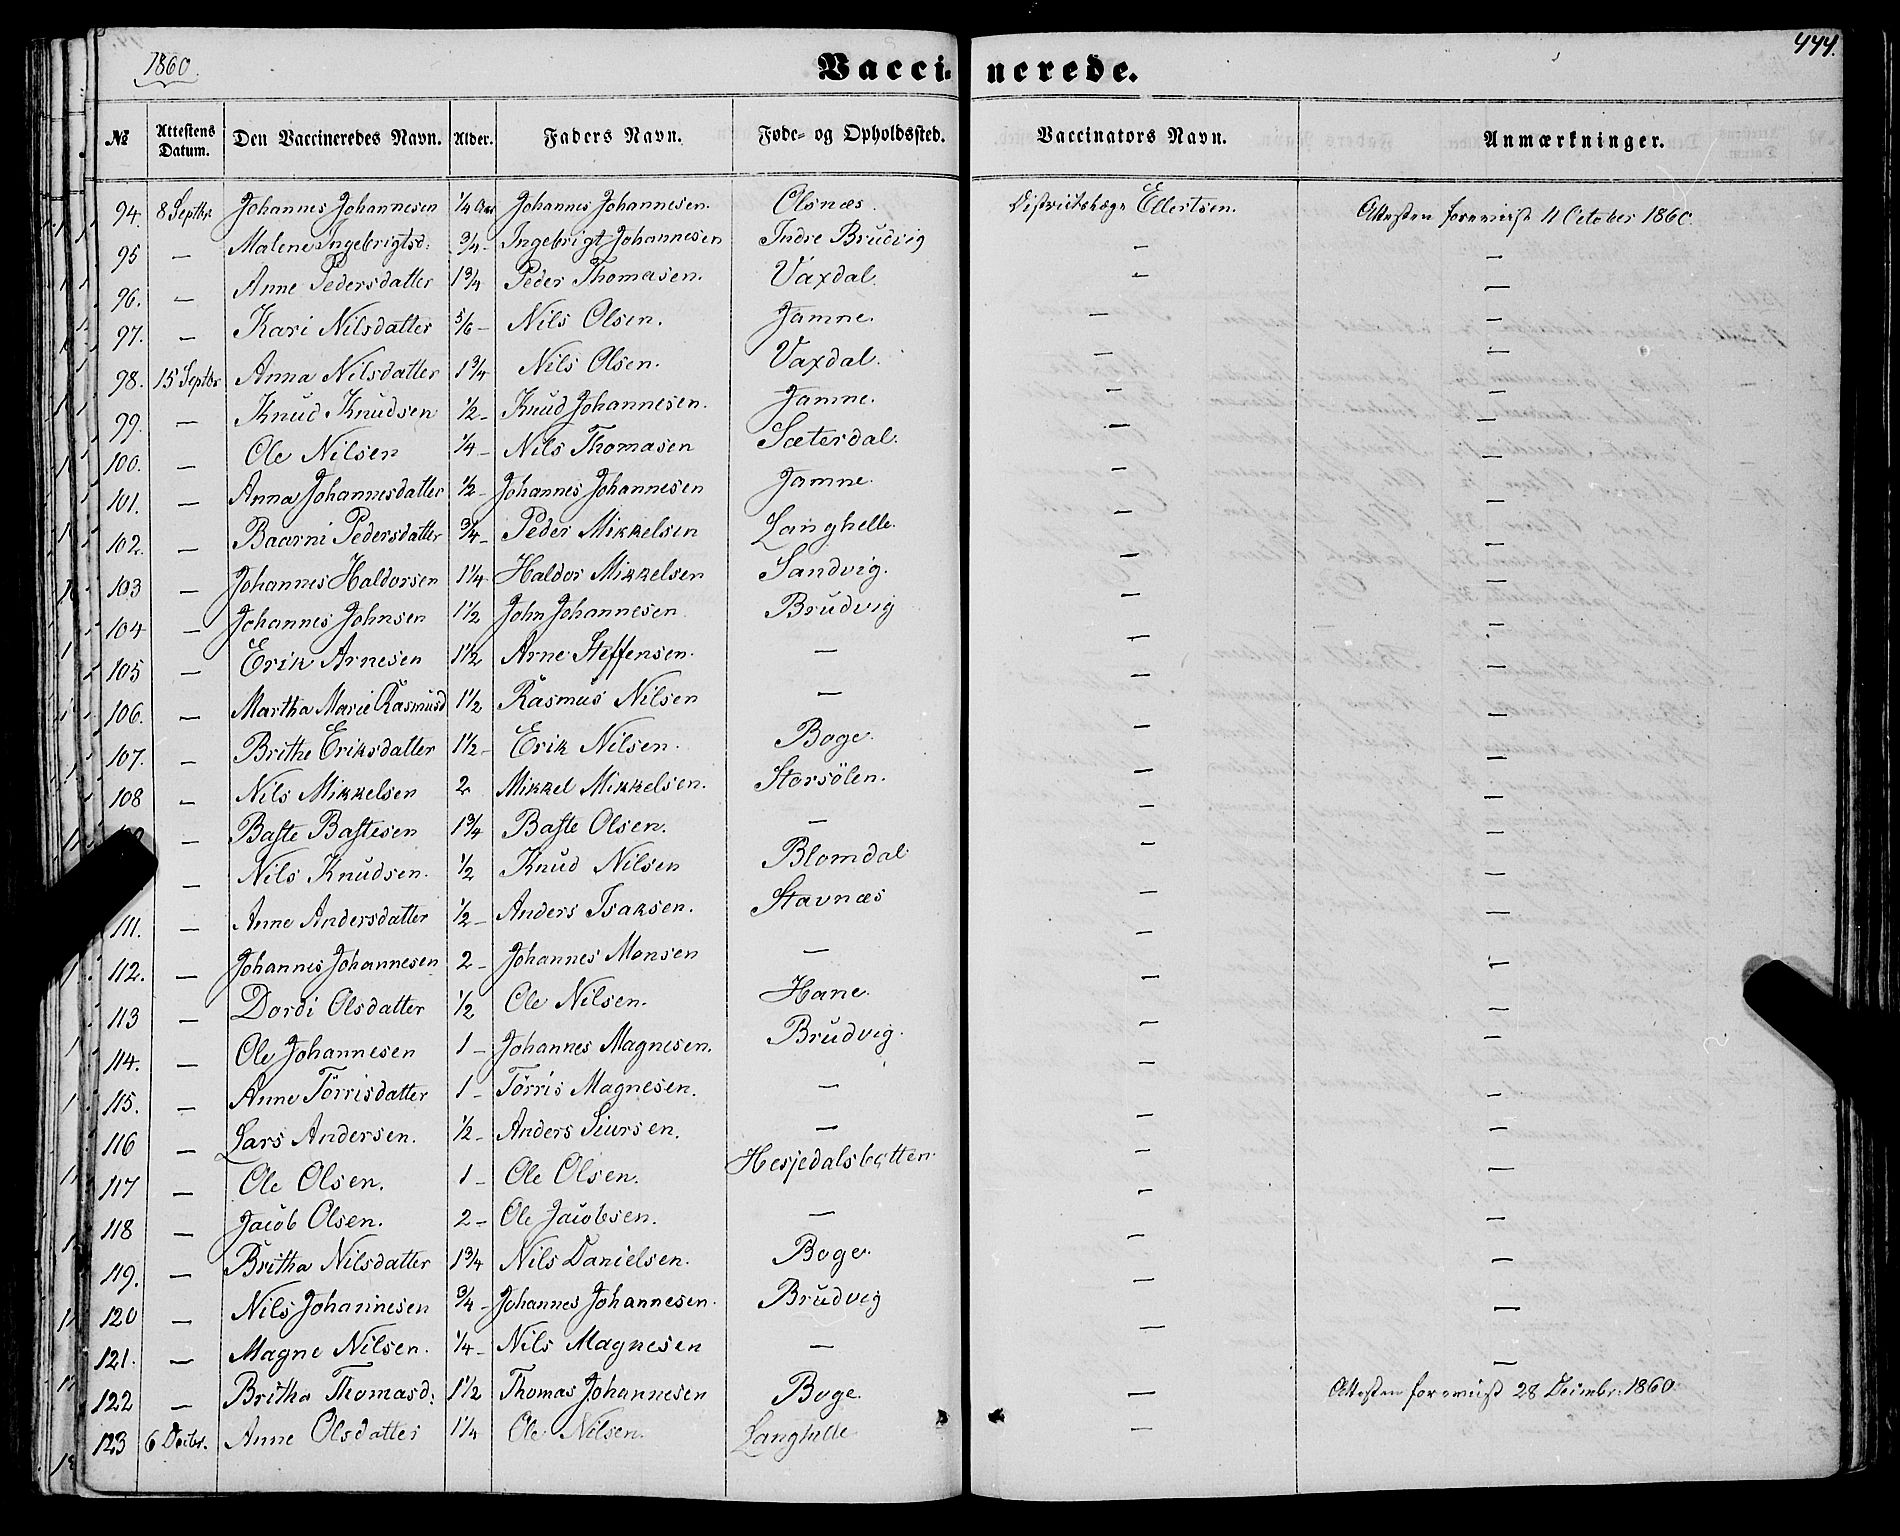 1860.
444.
Vaccinerede.
№ Attestens Datum. Den Vaccineredes Navn. Alder. Faders Navn. Føde- og Opholdssted. Vaccinators Navn. Anmærkninger.
94. 8 Septbr Johannes Johannesen 1/4 Aar Johannes Johannesen. Olsnæs. Districtslæge Ellertsen. Attesten foreviist 11 October 1860.
95 — Malene Ingebrigtsd: 3/4 - Ingebrigt Johannesen Indre Brudvig — —
96. — Anne Pedersdatter 1 3/4 Peder Thomasen. Vaxdal. — —
97. — Kari Nilsdatter 5/6 - Nils Olsen. Jamne. — —
98. 15 Septbr Anna Nilsdatter 1 3/4 Nils Olsen. Vaxdal. — —
99. — Knud Knudsen 1/2 - Knud Johannesen. Jamne. — —
100. — Ole Nilsen 1/4 - Nils Thomasen Sæterdal. — —
101. — Anna Johannesdatter 1/2 - Johannes Johannesen Jamne. — —
102. — Baarni Pedersdatter 3/4 - Peder Mikkelsen Langhelle. — —
103 — Johannes Haldorsen 1 1/4 Haldor Mikkelsen Sandvig. — —
104 — Johannes Johnsen 1 1/2 John Johannesen Brudvig — —
105 — Erik Arnesen 1 1/2 Arne Steffensen. — — —
106. — Martha Marie Rasmusd 1 1/2 Rasmus Nilsen — — —
107. — Brithe Eriksdatter 1 1/2 - Erik Nilsen. Boge. — —
108 — Nils Mikkelsen 2 Mikkel Mikkelsen. Storsölen. — —
— Baste Bastesen 1 3/4 Baste Olsen. — — —
— Nils Knudsen. 1/2 Knud Nilsen Blomdal — —
111. — Anne Andersdatter 1/2 - Anders Isaksen. Stavnæs — —
112. — Johannes Johannesen 2 - Johannes Monsen — — —
113 — Dordi Olsdatter 1/2 Ole Nilsen. Hane. — —
114. — Ole Johannesen 1 - Johannes Magnesen. Brudvig. — —
115. — Anne Törrisdatter 1 - Törris Magnesen. — — —
116 — Lars Andersen. 1/2 - Anders Siursen. — — —
117 — Ole Olsen. 1 - Ole Olsen. Hesjedalsbotten. — —
118 — Jacob Olsen. 2 - Ole Jacobsen. — — —
119. — Britha Nilsdatter 1 3/4 Nils Danielsen. Boge. — —
120 — Nils Johannesen 3/4 - Johannes Johannesen. Brudvig — —
121. — Magne Nilsen. 1/4 - Nils Magnesen — — —
122 — Britha Thomasd: 1 1/2 Thomas Johannesen Boge — Attesten foreviist 28 Decmbr. 1860.
123 6 Decbr. Anne Olsdatter 1 1/4 Ole Nilsen. Langhelle —